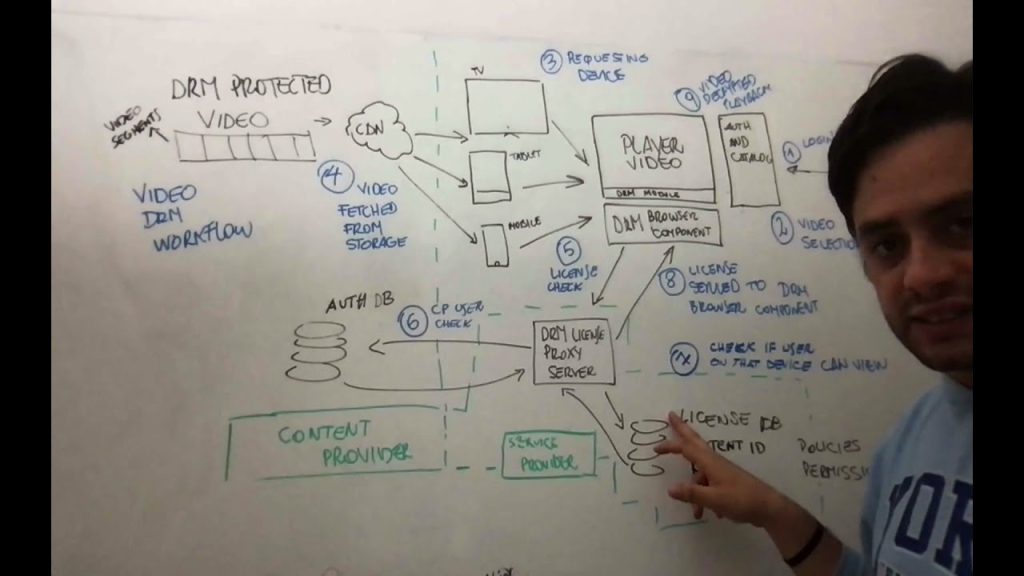 DRM PROTECTED
VIDEO
VIDEO
SEGMENTS
VIDEO
DRM
WORKFLOW
CDN
4 VIDEO
FETCHED
FROM
STORAGE
TV
TABLET
MOBILE
3 REQUESTING
DEVICE
9 VIDEO
DECRYPTED
PLAYBACK
PLAYER
VIDEO
DRM MODULE
DRM BROWSER
COMPONENT
AUTH
AND
CATALOG
1 LOGIN
2 VIDEO
SELECTION
5
LICENSE
CHECK
8 LICENSE
SERVED TO DRM
BROWSER COMPONENT
AUTH DB
6 CP USER
CHECK
DRM LICENSE
PROXY
SERVER
7X CHECK IF USER
ON THAT DEVICE CAN VIEW
CONTENT
PROVIDER
SERVICE
PROVIDER
LICENSE DB
TENT ID
POLICIES
PERMISSI
YORK